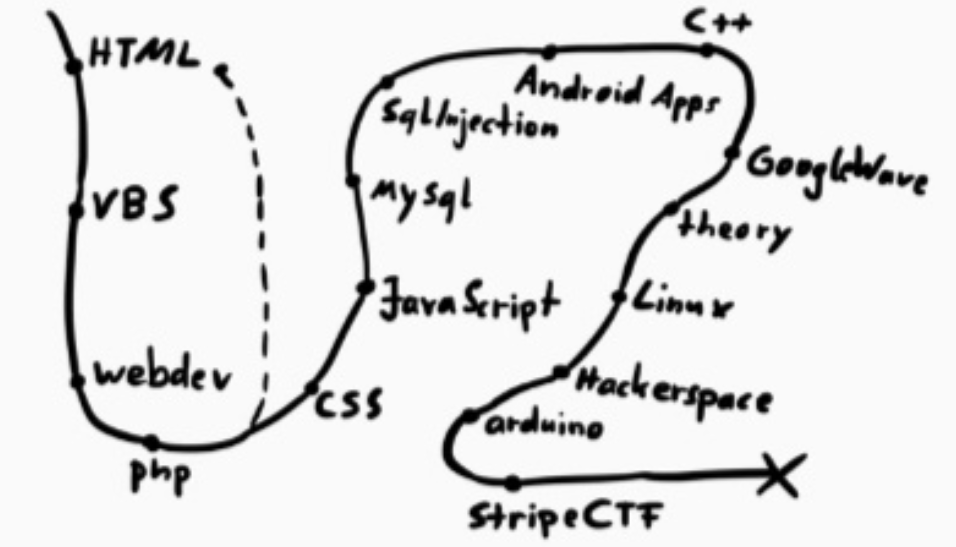 HTML
VBS
webdev
php
CSS
JavaScript
Mysql
SqlInjection
Android Apps
C++
GoogleWave
theory
Linux
Hackerspace
arduino
StripeCTF